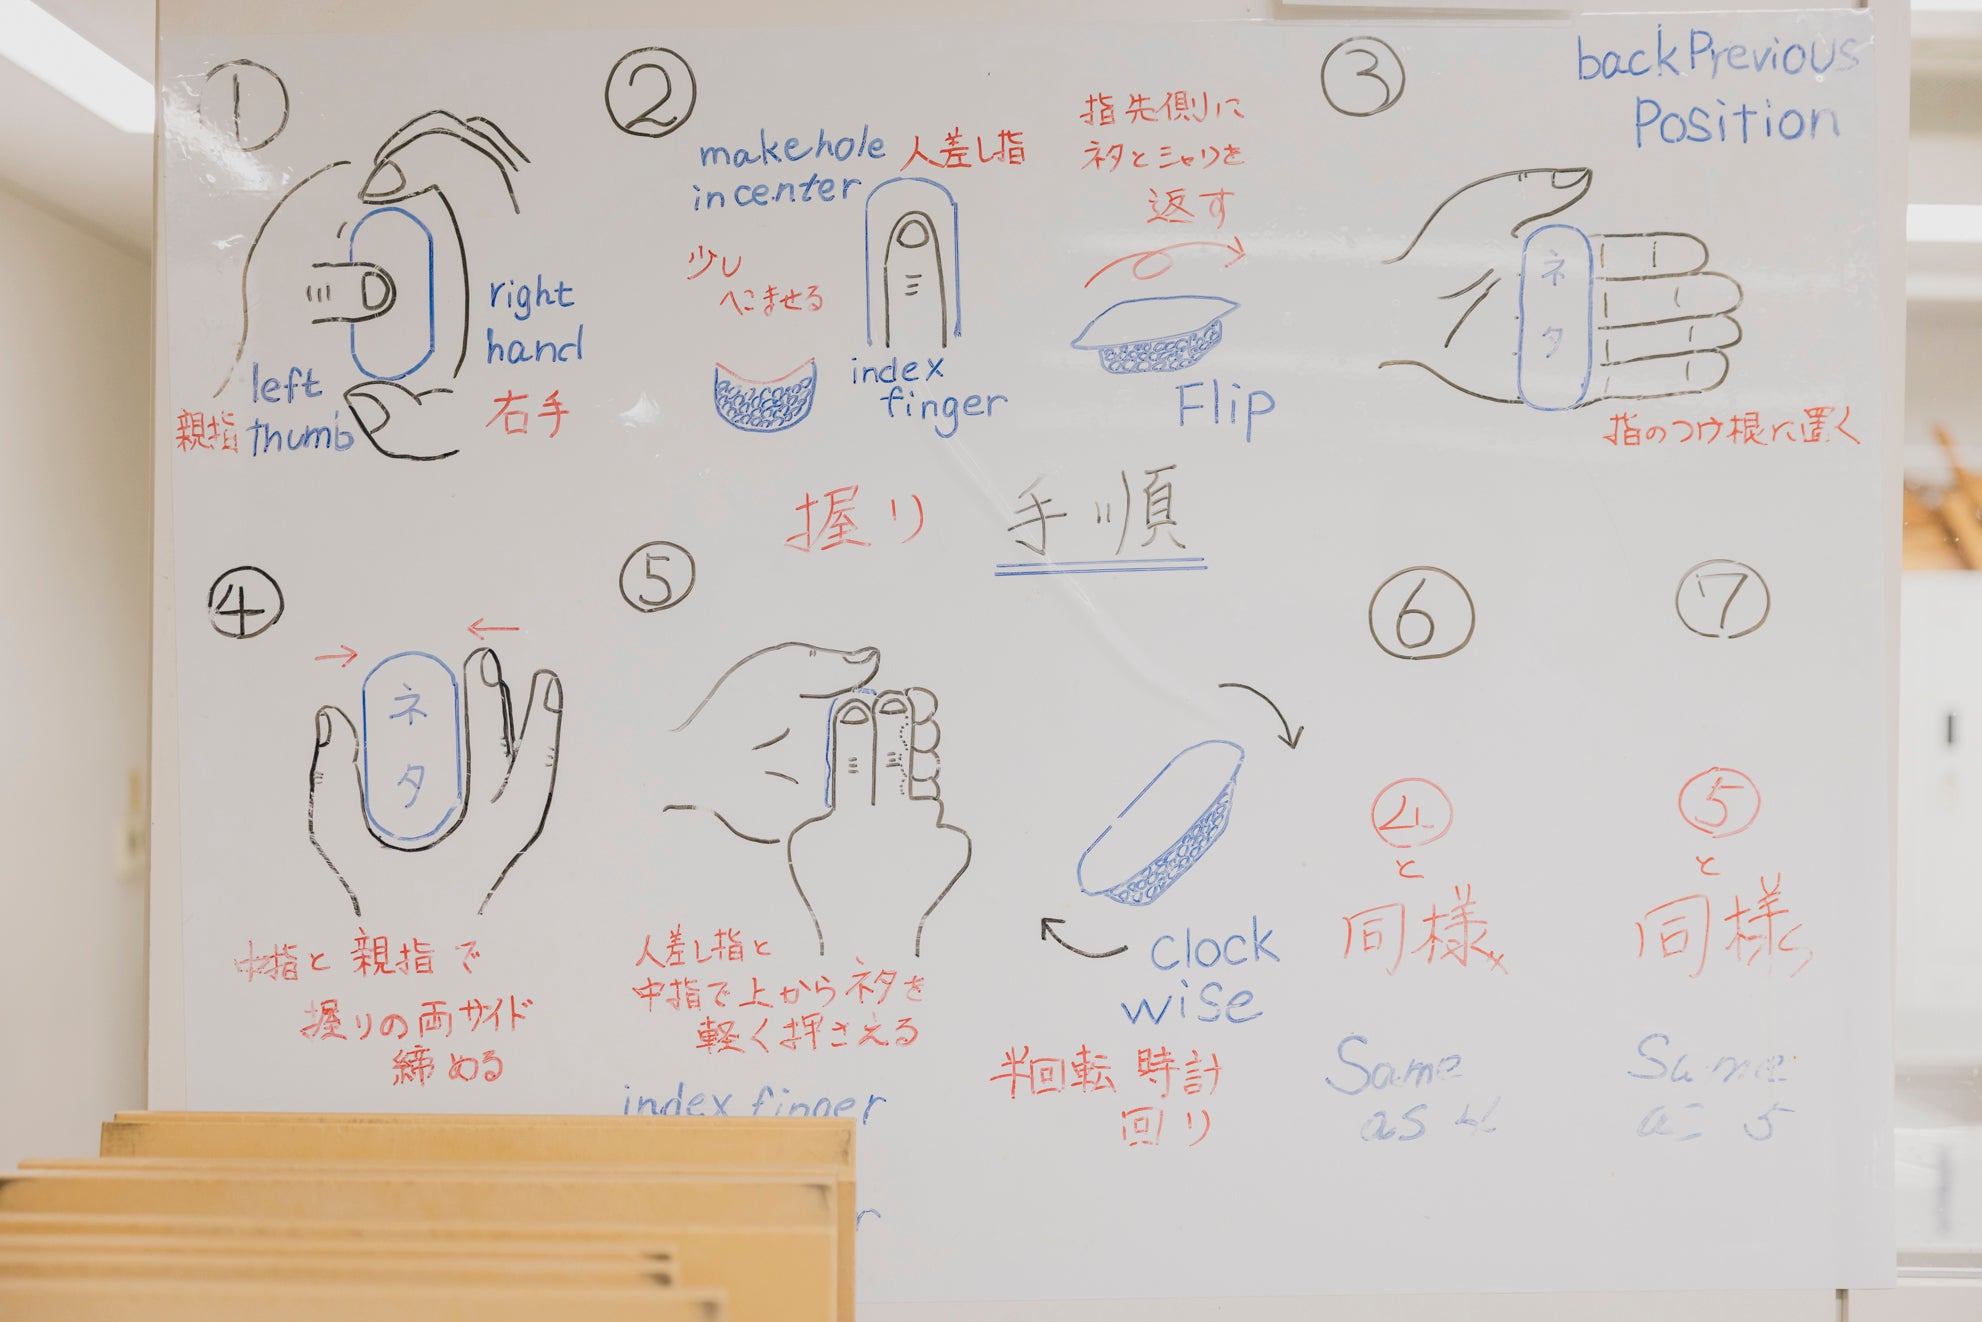 ①
right
hand
右手
left
thumb
親指
②
make hole
in center
人差し指
少し
へこませる
index
finger
指先側に
ネタとシャリを
返す
Flip
③
back Previous
Position
ネタ
指のつけ根に置く
握り 手順
④
ネタ
中指と親指で
握りの両サイド
締める
⑤
人差し指と
中指で上からネタを
軽く押さえる
index finger
clock
wise
半回転 時計
回り
⑥
④
と
同様
Same
as 4
⑦
⑤
と
同様
Same
as 5